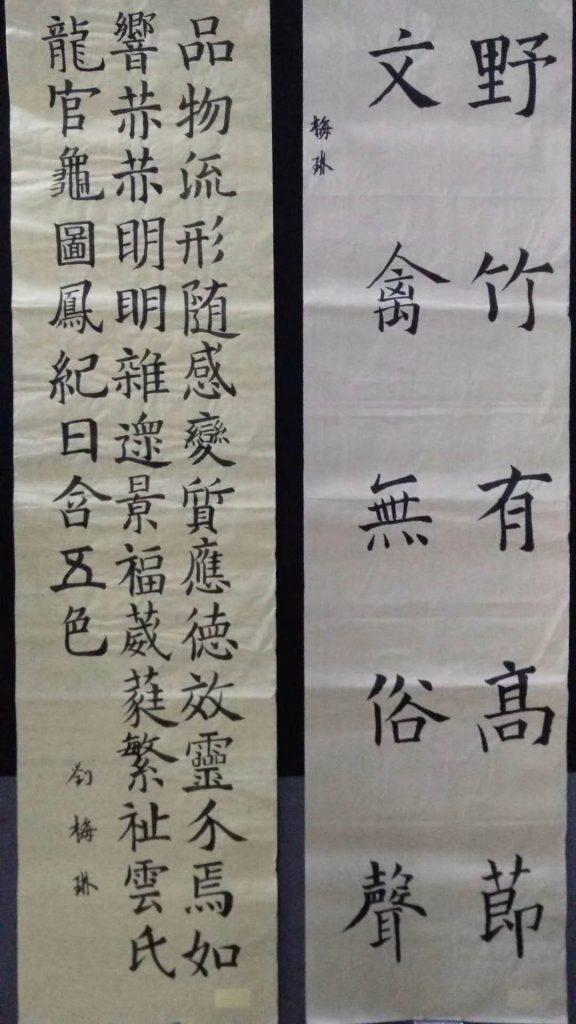 野竹有髙莭
文禽無俗聲
梅琳
品物流形随感變質應德效靈介焉如
響赫赫眀眀雜遝景福葳蕤繁祉雲氏
龍官龜圖鳳紀日含五色
刘梅琳